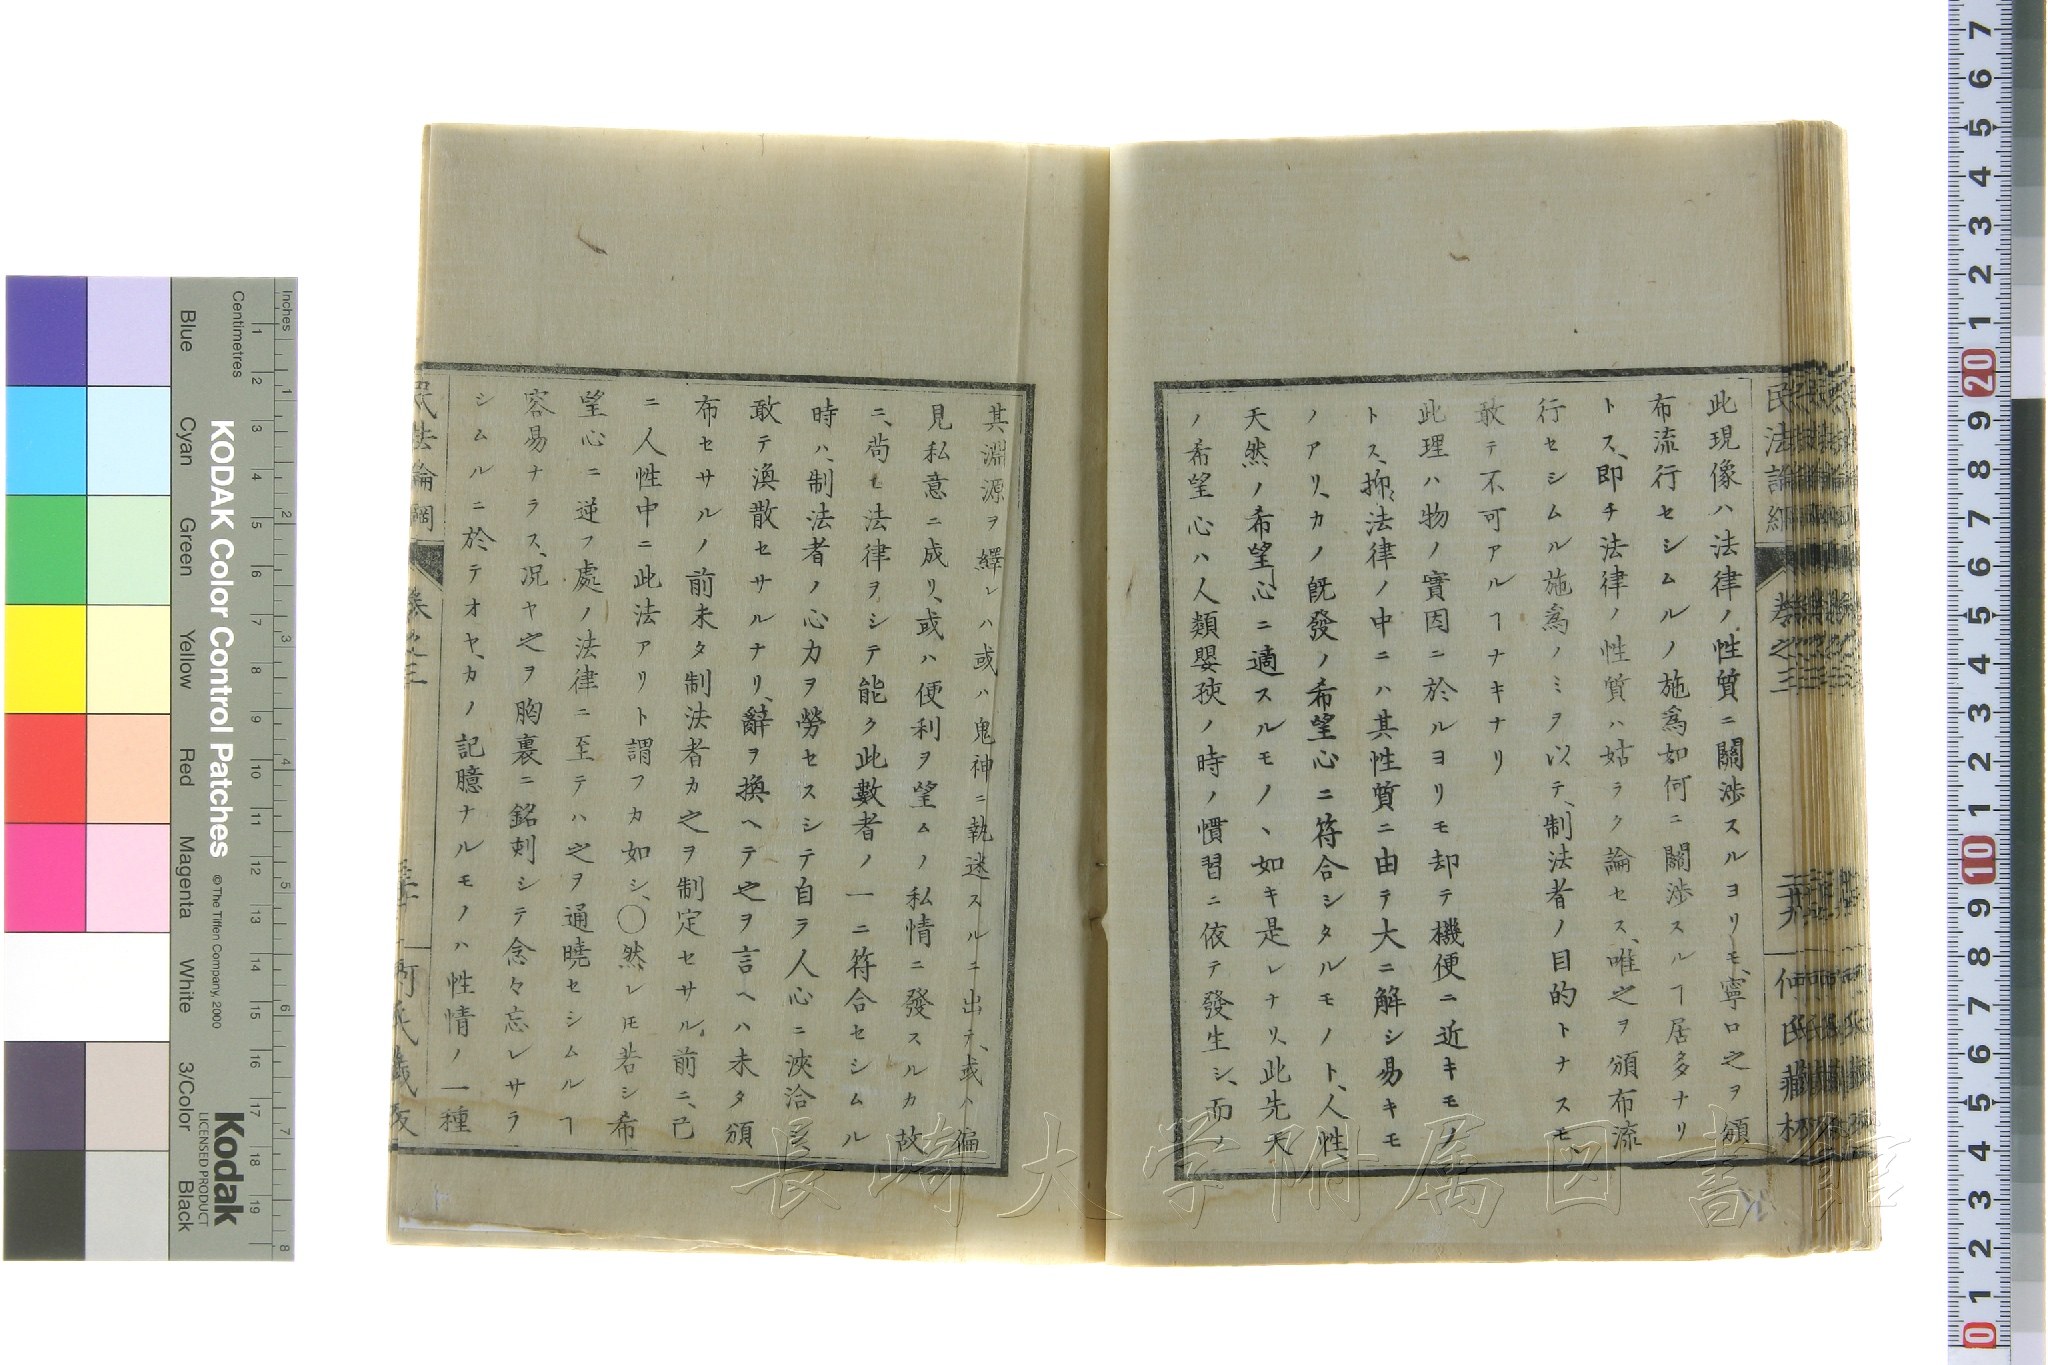 民法論綱 卷之三 二十九 何氏藏板
此現像ハ法律ノ性質ニ關渉スルヨリモ、寧ロ之ヲ頒
布流行セシムルノ施爲如何ニ關渉スルヿ居多ナリ
トス、即チ法律ノ性質ハ姑ラク論セス、唯之ヲ頒布流
行セシムル施爲ノミヲ以テ、制法者ノ目的トナスモ、
敢テ不可アルヿナキナリ
此理ハ物ノ實因ニ於ルヨリモ却テ機便ニ近キモノ
トス、抑、法律ノ中ニハ其性質ニ由テ大ニ解シ易キモ
ノアリ、カノ既發ノ希望心ニ符合シタルモノト、人性
天然ノ希望心ニ適スルモノヽ如キ是レナリ、此先天
ノ希望心ハ人類嬰孩ノ時ノ慣習ニ依テ發生シ、而ノ
其淵源ヲ繹レハ或ハ鬼神ニ執迷スルニ出テ、或ハ偏
見私意ニ成リ、或ハ便利ヲ望ムノ私情ニ發スルカ故
ニ、苟モ法律ヲシテ能ク此數者ノ一ニ符合セシムル
時ハ、制法者ノ心力ヲ勞セスシテ自ラ人心ニ浹洽シ
敢テ渙散セサルナリ、辭ヲ換ヘテ之ヲ言ヘハ未タ頒
布セサルノ前未タ制法者カ之ヲ制定セサル前ニ、已
ニ人性中ニ此法アリト謂フカ如シ、〇然レㇳモ若シ希
望心ニ逆フ處ノ法律ニ至テハ之ヲ通曉セシムルヿ
容易ナラス、况ヤ之ヲ胸裏ニ銘刺シテ念々忘レサラ
シムルニ於テオヤ、カノ記臆ナルモノハ性情ノ一種
民法論綱 卷之三 三十 何氏藏板
KODAK Color Control Patches
© The Tiffen Company, 2000
Kodak
LICENSED PRODUCT
Inches
Centimetres
Blue
Cyan
Green
Yellow
Red
Magenta
White
3/Color
Black
長崎大学附属図書館